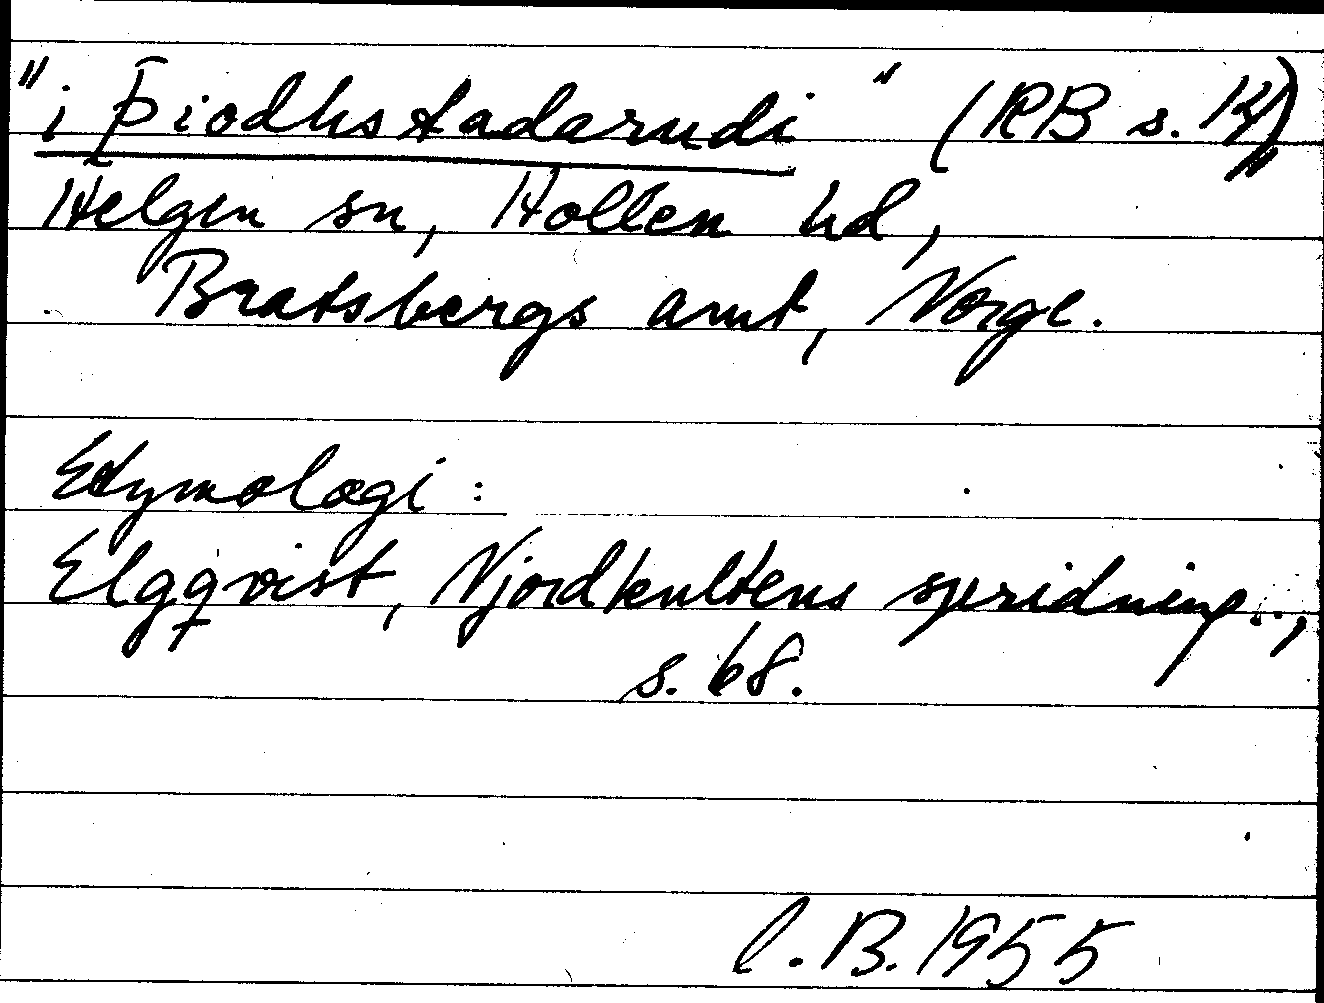 "i Þiodhstadarudi" (RB s. 14),
Helgen sn, Hollen hd,
Bratsbergs amt, Norge.
Etymologi:
Elgqvist, Njordkultens spridning..,
s. 68.
C.B. 1955